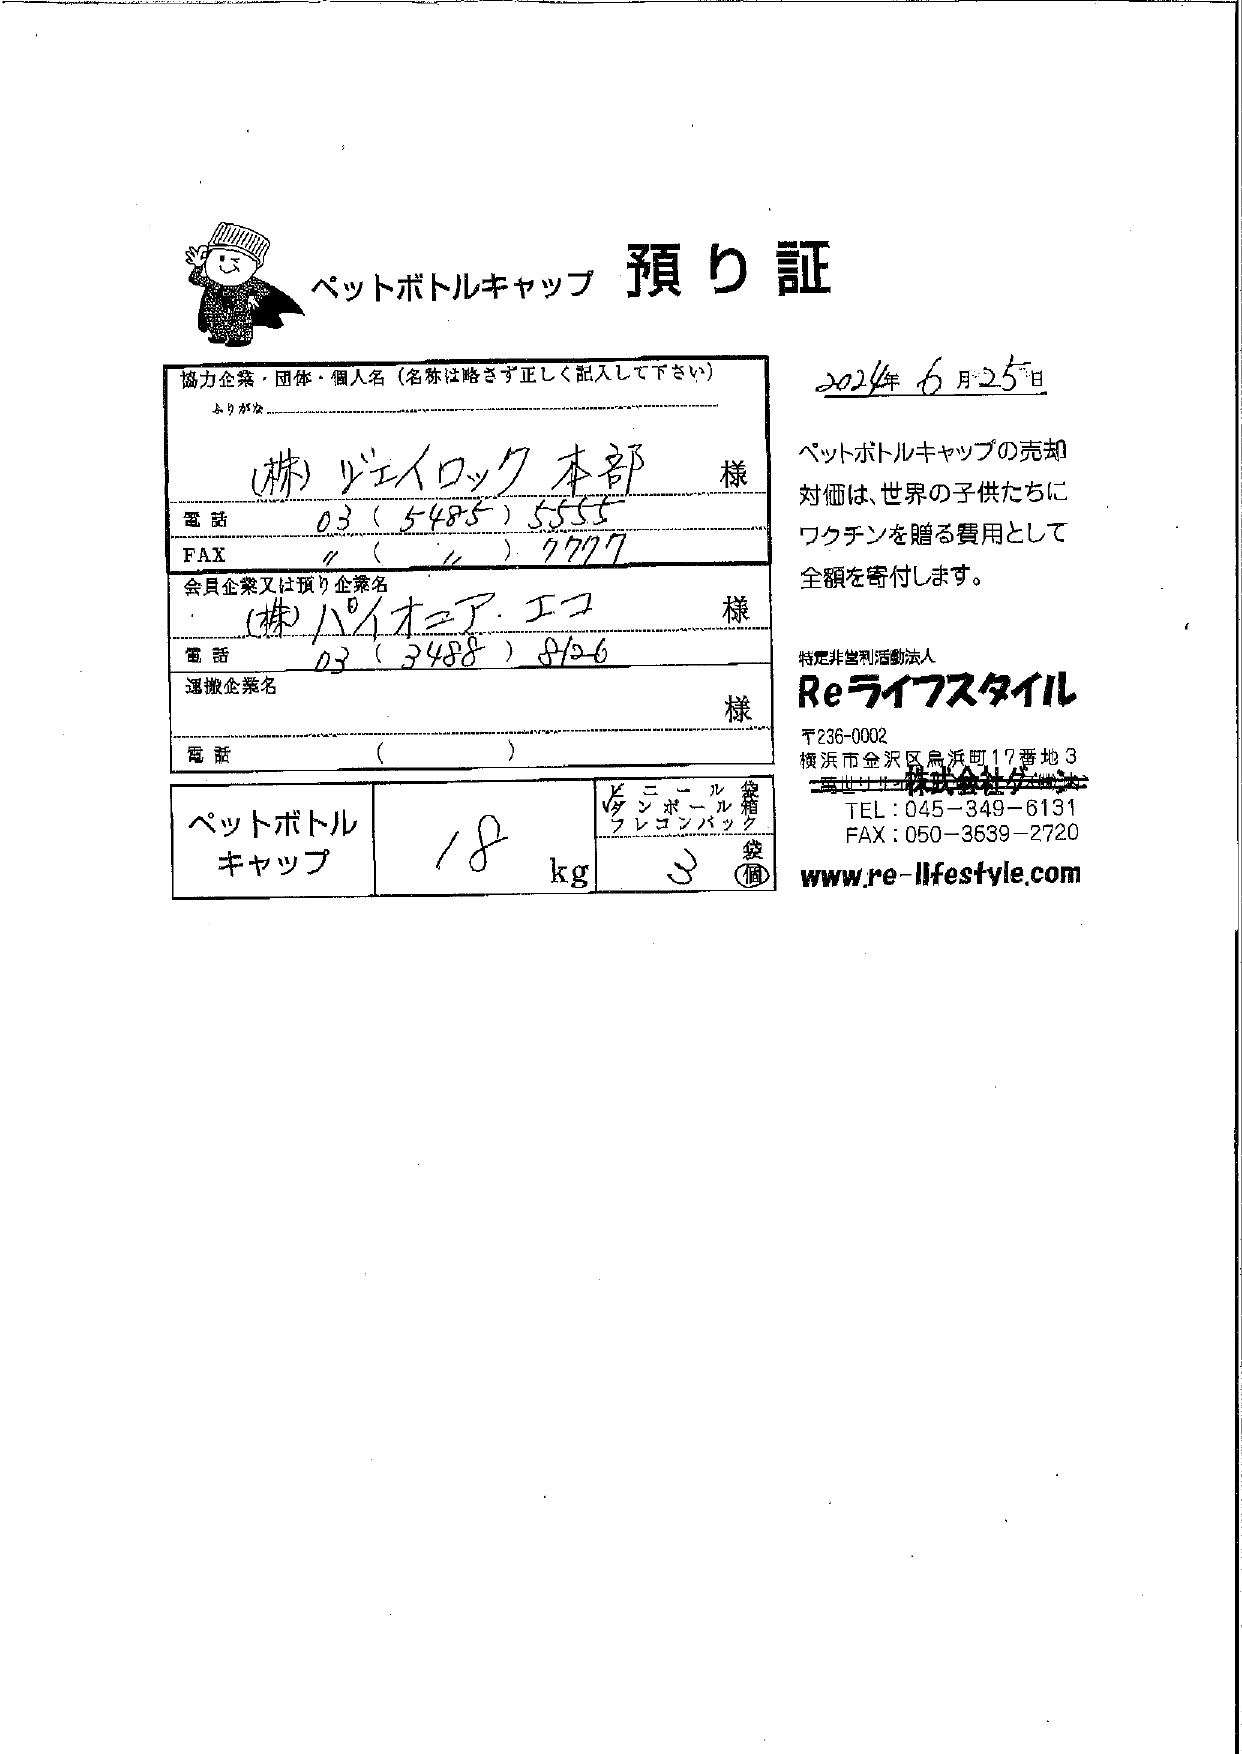 ペットボトルキャップ 預り証
2024年 6月25日
協力企業・団体・個人名（名称は略さず正しく記入して下さい）
ふりがな
(株) ジェイロック 本部 様
電話 03 ( 5485 ) 5555
FAX 〃 ( 〃 ) 7777
会員企業又は預り企業名
(株) パイオニア・エコ 様
電話 03 ( 3488 ) 8126
運搬企業名
様
電話 ( )
ペットボトル
キャップ
18 kg
ビニール袋
✓ダンボール箱
フレコンバック
3 袋
個
ペットボトルキャップの売却
対価は、世界の子供たちに
ワクチンを贈る費用として
全額を寄付します。
特定非営利活動法人
Reライフスタイル
〒236-0002
横浜市金沢区鳥浜町17番地3
株式会社
TEL：045－349－6131
FAX：050－3639－2720
www.re-lifestyle.com